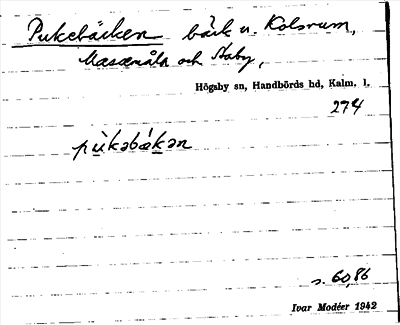 Pukebäcken bäck u. Kolsrum,
Massemåla och Staby,
Högsby sn, Handbörds hd, Kalm. l.
274
pùkəbǽkən
s. 60, 86
Ivar Modéer 1942